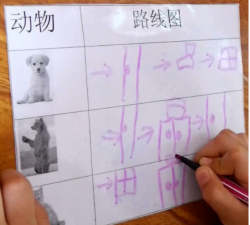 动物
路线图